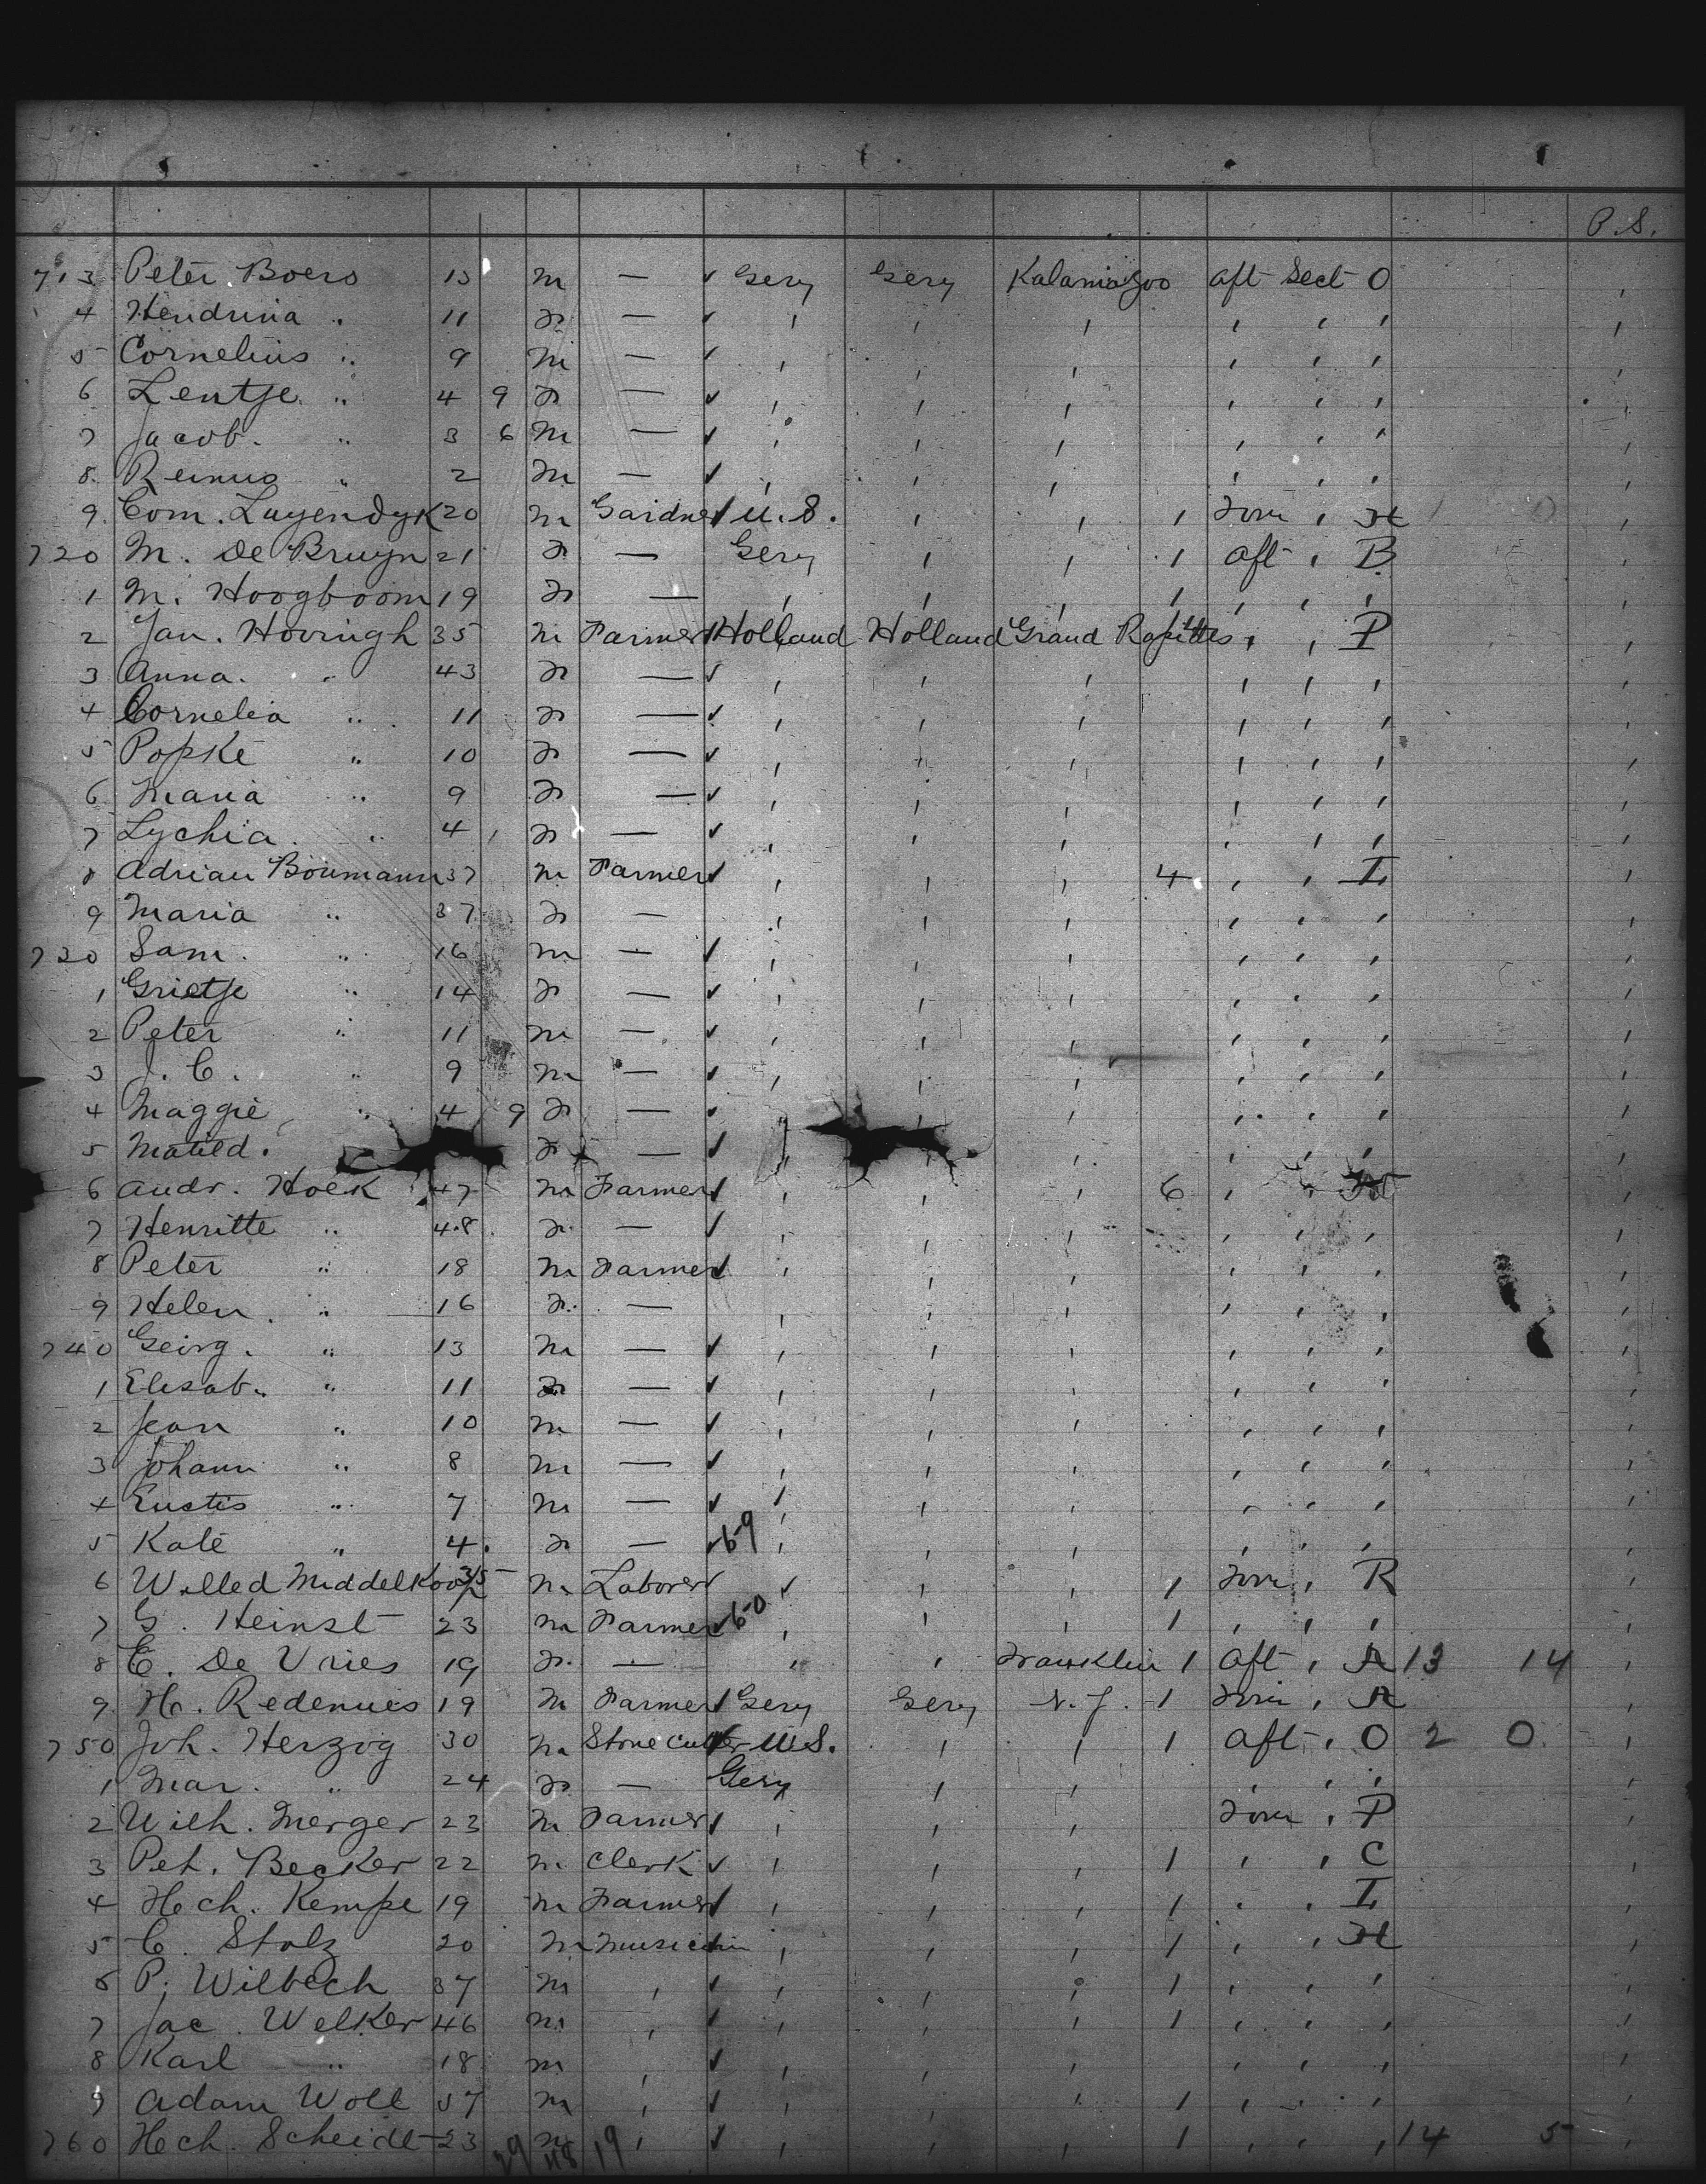 P.S.
713 Peter Boers 13 m — ✓ Gery Gery Kalamazoo aft Sect O
4 Hendrina " 11 f — ✓ , , , , , , ,
5 Cornelius " 9 m — ✓ , , , , , , ,
6 Lentje " 4 9 f — ✓ , , , , , , ,
7 Jacob. " 3 6 m — ✓ , , , , , , ,
8. Reinus " 2 m — ✓ , , , , , , ,
9. Corn. Luyendyk 20 m Gardner ✓ U.S. , , 1 forw , H
720 M. De Bruyn 21 f — Gery , , 1 aft , B ,
1 M. Hoogboom 19 f — , , , 1 , , , ,
2 Jan. Hovingh 35 m Farmer ✓ Holland Holland Grand Rapids , , P ,
3 Anna. " 43 f — ✓ , , , , , , ,
4 Cornelia " 11 f — ✓ , , , , , , ,
5 Popke " 10 f — ✓ , , , , , , ,
6 Maria " 9 f — ✓ , , , , , , ,
7 Lychia " 4 , f — ✓ , , , , , , ,
8 Adrian Boumann 37 m Farmer ✓ , , , 4 , , I ,
9 Maria " 37 f — , , , , , , ,
730 Sam. " 16 m — ✓ , , , , , , ,
1 Grietje " 14 f — ✓ , , , , , , ,
2 Peter " 11 m — ✓ , , , , , , ,
3 J. C. " 9 m — ✓ , , , , , , ,
4 Maggie " 4 9 f — ✓ , , , , , , ,
5 Matild. f — ✓ , , , , , , ,
6 Andr. Hoek 47 m Farmer ✓ , , , 6 , , ,
7 Henritte " 48 f — ✓ , , , , , , ,
8 Peter " 18 m Farmer ✓ , , , , , , ,
9 Helen " 16 f — , , , , , , ,
740 Georg. " 13 m — ✓ , , , , , , ,
1 Elisab. " 11 f — ✓ , , , , , , ,
2 Jean " 10 m — ✓ , , , , , , ,
3 Johann " 8 m — ✓ , , , , , , ,
4 Eustis " 7 m — ✓ , , , , , , ,
5 Kate " 4 f — ✓ 69 , , , , , , ,
6 Willed Middelkoop 35 m Laborer ✓ , , , 1 forw , R ,
7 G. Heinst 23 m Farmer ✓ 60 , , , 1 , , , ,
8 C. De Vries 19 f — " , Franklin 1 aft , A 13 14 ,
9 H. Redenues 19 m Farmer ✓ Gery Gery N. J. 1 forw , A ,
750 Joh. Herzog 30 m Stone cutter U.S. , , 1 aft , O 2 0 ,
1 Mar. " 24 f — Gery , , , , , ,
2 Wilh. Merger 23 m Farmer ✓ , , , forw , P ,
3 Pet. Becker 22 m Clerk ✓ , , , 1 , , C ,
4 Hch. Kempe 19 m Farmer ✓ , , , 1 , , I ,
5 C. Stolz 20 m Musician , , , 1 , , H ,
6 P. Wilbech 37 m , ✓ , , , 1 , , , ,
7 Jac. Welker 46 m , ✓ , , , 1 , , , ,
8 Karl " 18 m , ✓ , , , , , , ,
9 Adam Woll 57 m , ✓ , , , 1 , , , ,
760 Hch. Scheidt 23 m , ✓ , , , 1 , , , 14 5 ,
29 48 19